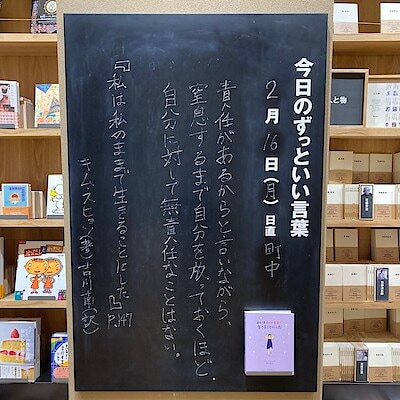 今日のずっといい言葉
2月16日(月)日直 町中
責任があるからと言いながら、
窒息するまで自分を放っておくほど、
自分に対して無責任なことはない。
『私は私のままで生きることにした』P.147
キム・スヒョン(著)吉川南(訳)
人と物